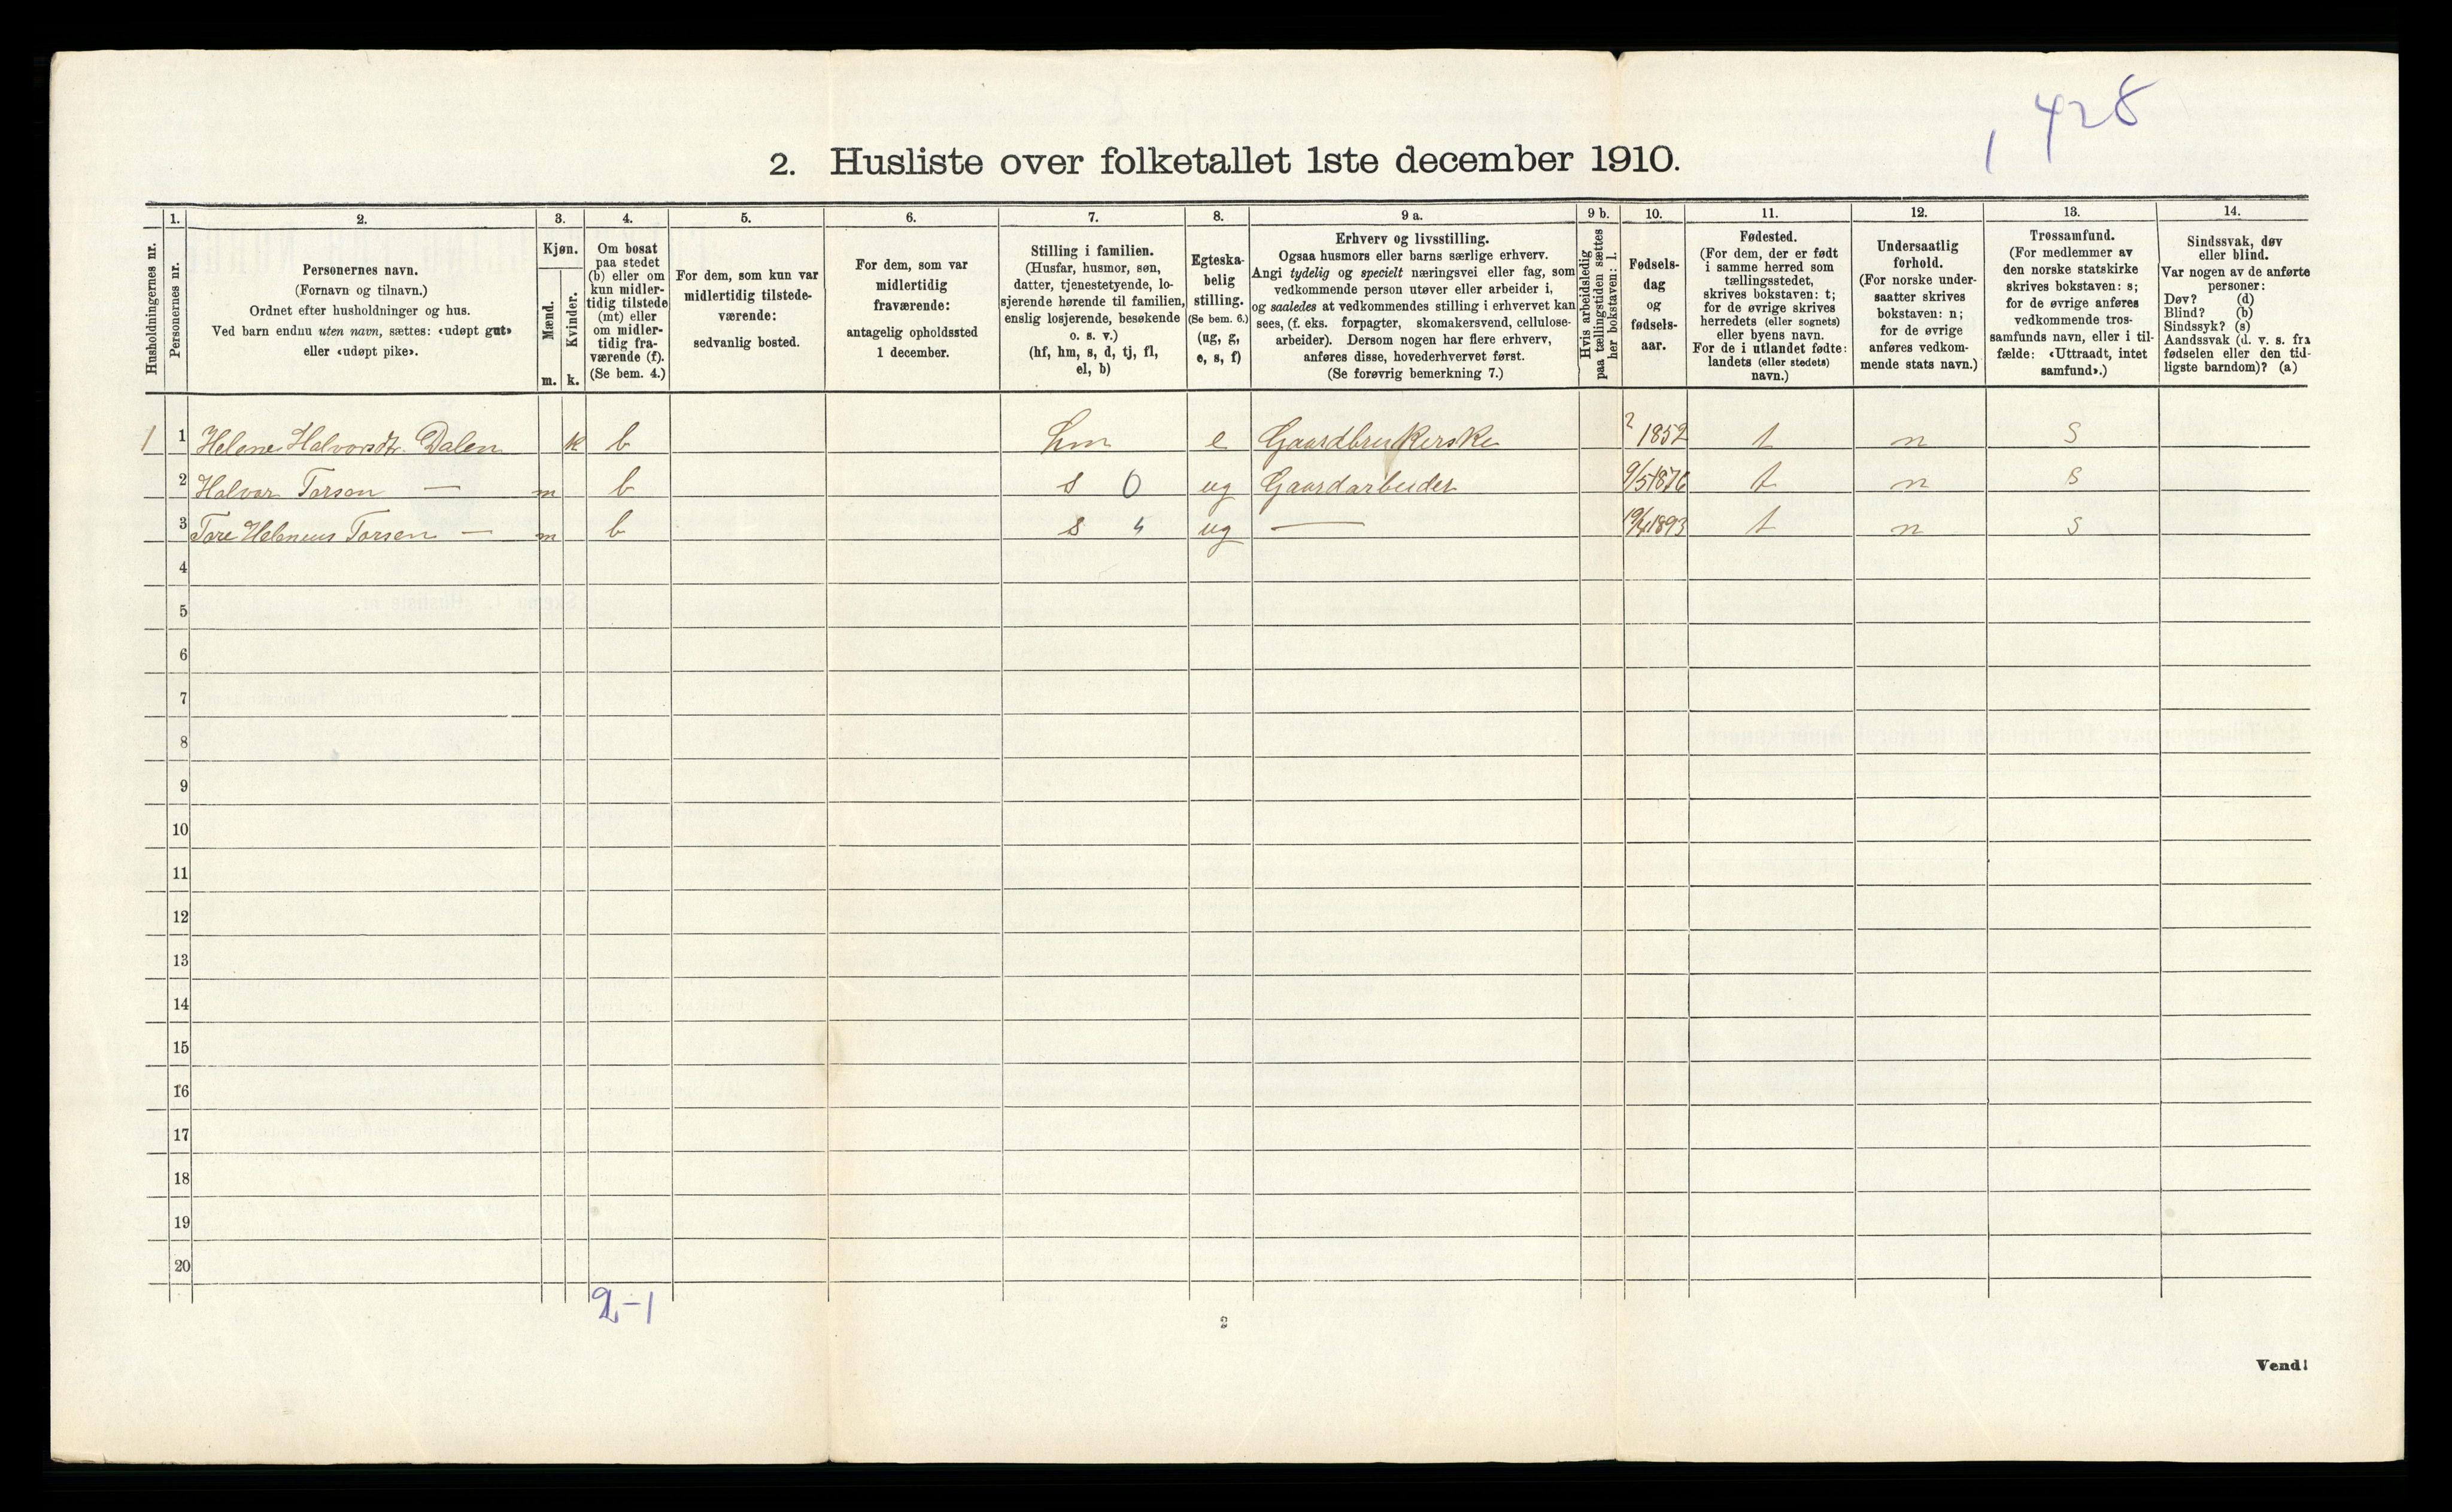 1 428
2. Husliste over folketallet 1ste december 1910.
Husholdningernes nr.
1.
Personernes nr.
2.
Personernes navn.
(Fornavn og tilnavn.)
Ordnet efter husholdninger og hus.
Ved barn endnu uten navn, sættes: «udøpt gut»
eller «udøpt pike».
3.
Kjøn.
Mænd.
m.
Kvinder.
k.
4.
Om bosat
paa stedet
(b) eller om
kun midler-
tidig tilstede
(mt) eller
om midler-
tidig fra-
værende (f).
(Se bem. 4.)
5.
For dem, som kun var
midlertidig tilstede-
værende:
sedvanlig bosted.
6.
For dem, som var
midlertidig
fraværende:
antagelig opholdssted
1 december.
7.
Stilling i familien.
(Husfar, husmor, søn,
datter, tjenestetyende, lo-
sjerende hørende til familien,
enslig losjerende, besøkende
o. s. v.)
(hf, hm, s, d, tj, fl,
el, b)
8.
Egteska-
belig
stilling.
(Se bem. 6.)
(ug, g,
e, s, f)
9 a.
Erhverv og livsstilling.
Ogsaa husmors eller barns særlige erhverv.
Angi tydelig og specielt næringsvei eller fag, som
vedkommende person utøver eller arbeider i,
og saaledes at vedkommendes stilling i erhvervet kan
sees, (f. eks. forpagter, skomakersvend, cellulose-
arbeider). Dersom nogen har flere erhverv,
anføres disse, hovederhvervet først.
(Se forøvrig bemerkning 7.)
9 b.
Hvis arbeidsledig
paa tællingstiden sættes
her bokstaven: l.
10.
Fødsels-
dag
og
fødsels-
aar.
11.
Fødested.
(For dem, der er født
i samme herred som
tællingsstedet,
skrives bokstaven: t;
for de øvrige skrives
herredets (eller sognets)
eller byens navn.
For de i utlandet fødte:
landets (eller stedets)
navn.)
12.
Undersaatlig
forhold.
(For norske under-
saatter skrives
bokstaven: n;
for de øvrige
anføres vedkom-
mende stats navn.)
13.
Trossamfund.
(For medlemmer av
den norske statskirke
skrives bokstaven: s;
for de øvrige anføres
vedkommende tros-
samfunds navn, eller i til-
fælde: «Uttraadt, intet
samfund».)
14.
Sindssvak, døv
eller blind.
Var nogen av de anførte
personer:
Døv? (d)
Blind? (b)
Sindssyk? (s)
Aandssvak (d. v. s. fra
fødselen eller den tid-
ligste barndom)? (a)
1 1 Helene Halvorsdtr. Dalen k b hm e Gaardbrukerske ? 1852 t n S
2 Halvor Torsen — m b s 0 ug Gaardarbeider 9/5 1876 t n S
3 Tore Heleneus Torsen — m b s 4 ug — 1893 t n S
4
5
6
7
8
9
10
11
12
13
14
15
16
17
18
19
20
2-1
2
Vend!